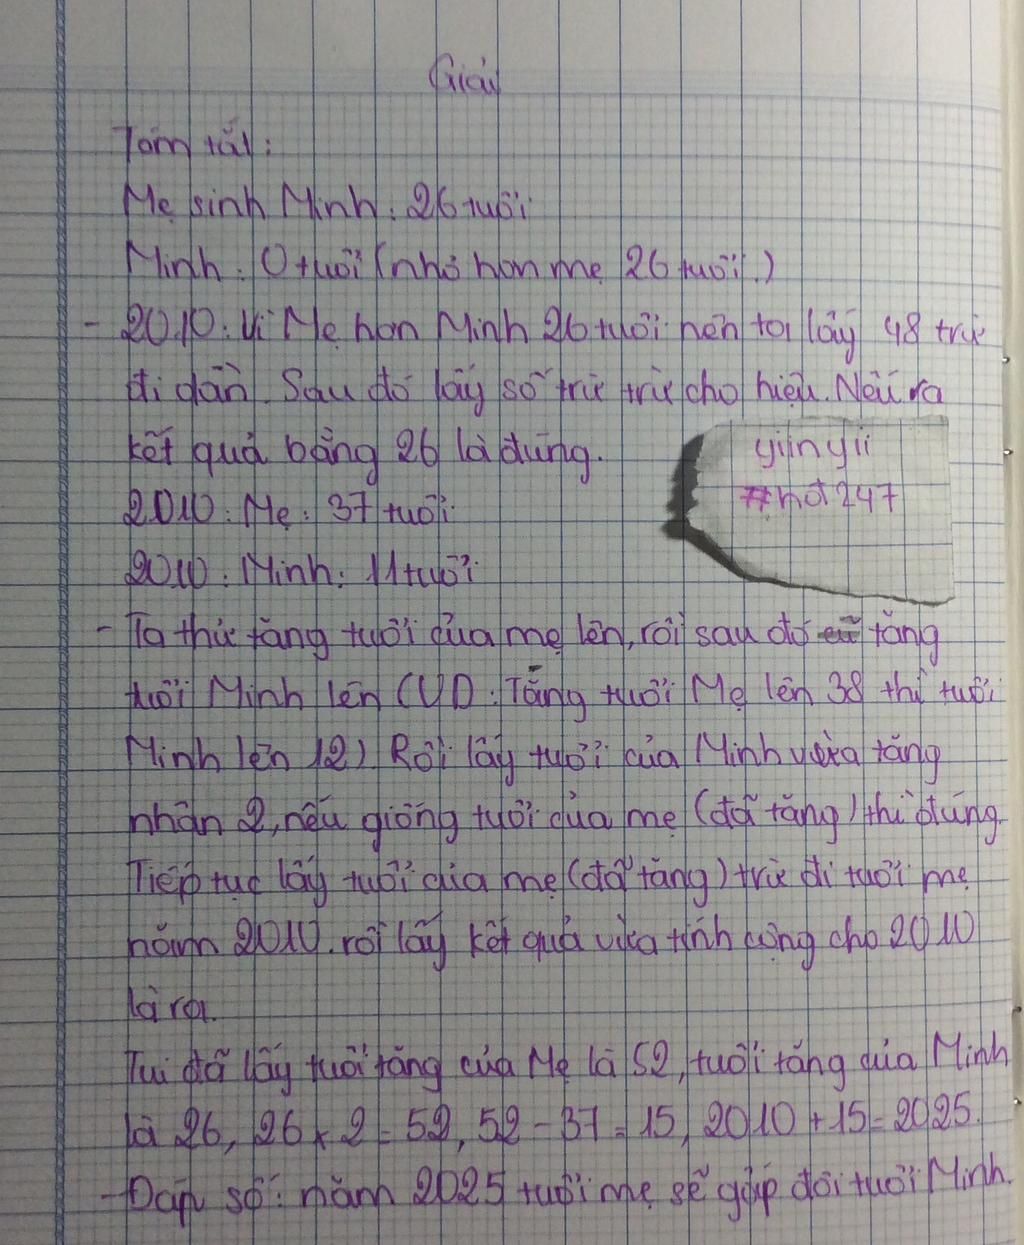 Giải
Tóm tắt:
Mẹ sinh Minh: 26 tuổi
Minh: 0 tuổi (nhỏ hơn mẹ 26 tuổi.)
- 2010: Vì Mẹ hơn Minh 26 tuổi nên ta lấy 48 trừ
đi dần. Sau đó lấy số trừ trừ cho hiệu. Nếu ra
kết quả bằng 26 là đúng.
yiinyii
#hot247
2010: Mẹ: 37 tuổi
2010: Minh: 11 tuổi
- Ta thử tăng tuổi của mẹ lên, rồi sau đó tăng
tuổi Minh lên (VD: Tăng tuổi Mẹ lên 38 thì tuổi
Minh lên 12) Rồi lấy tuổi của Minh vừa tăng
nhân 2, nếu giống tuổi của mẹ (đã tăng) thì đúng.
Tiếp tục lấy tuổi của mẹ (đã tăng) trừ đi tuổi mẹ
năm 2010. rồi lấy kết quả vừa tính cộng cho 2010
là ra.
Tui đã lấy tuổi tăng của Mẹ là 52, tuổi tăng của Minh
là 26, 26 x 2 = 52, 52 - 37 = 15, 2010 + 15 = 2025.
- Đáp số: năm 2025 tuổi mẹ sẽ gấp đôi tuổi Minh.